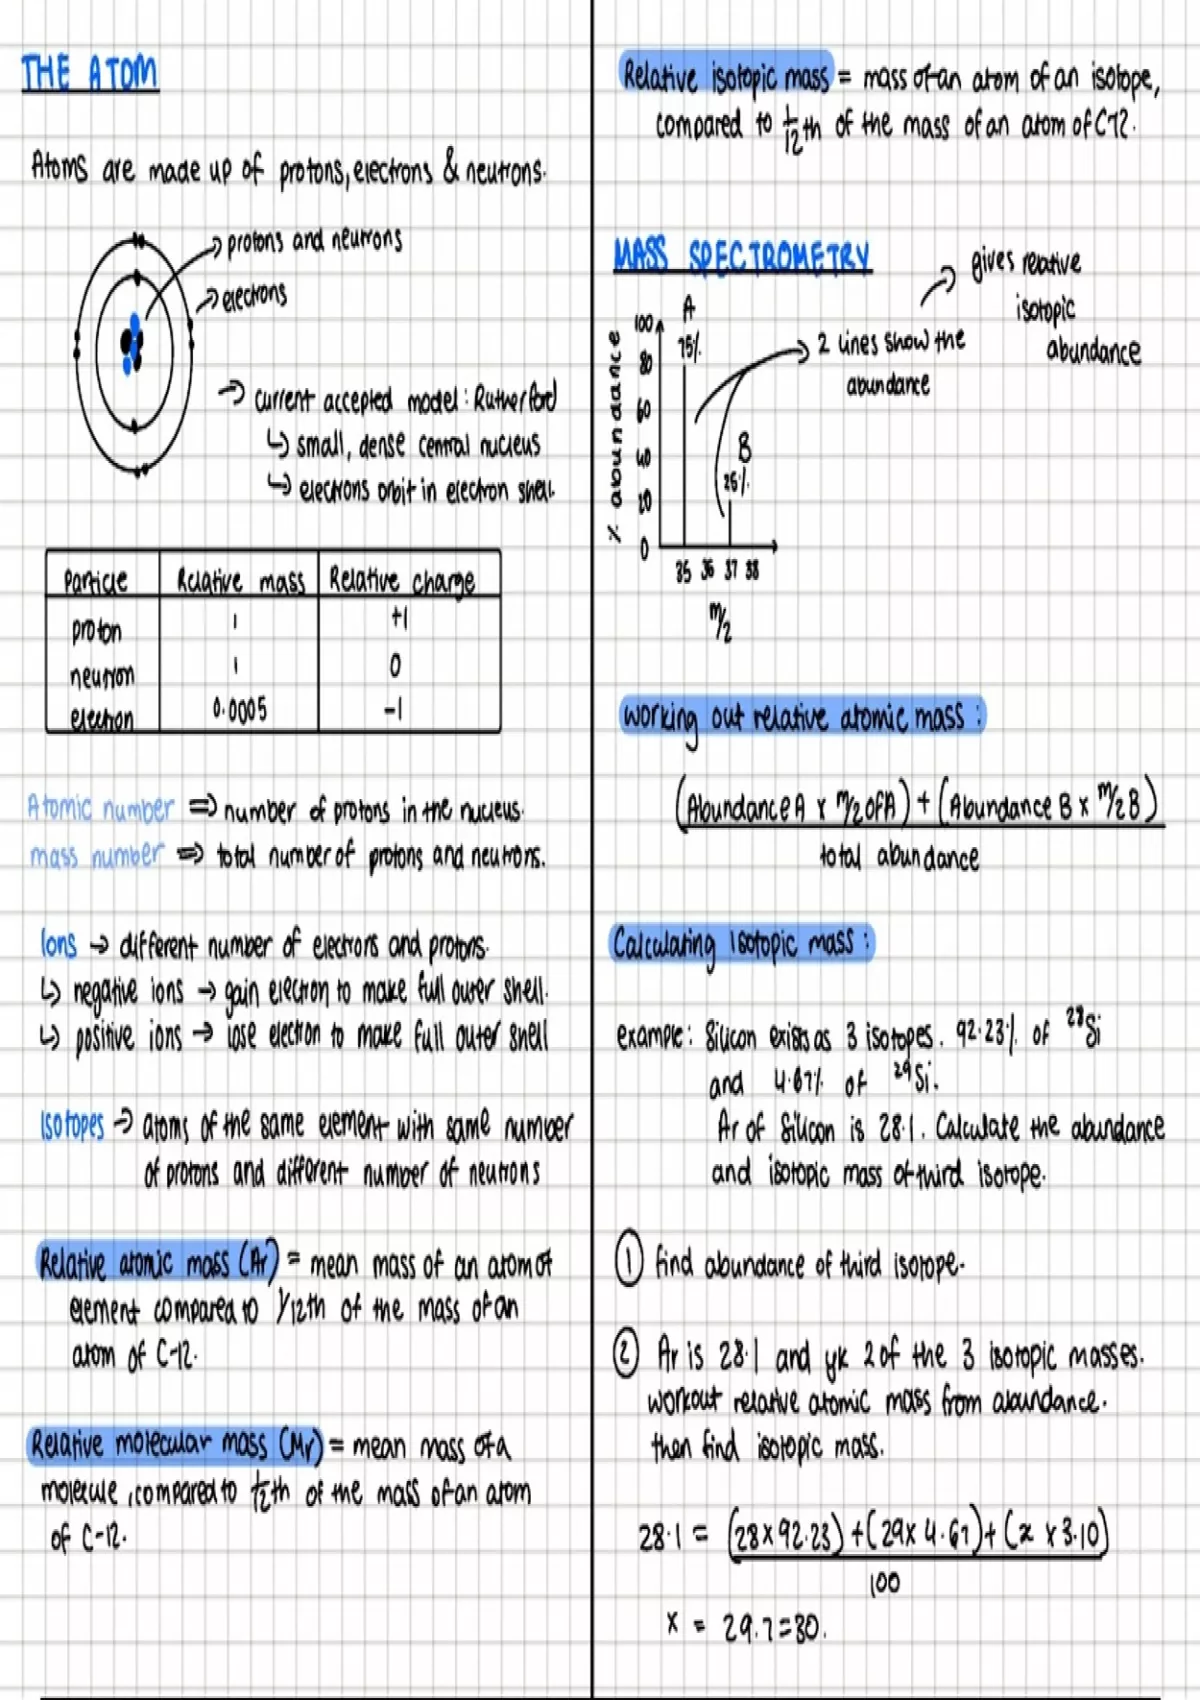 THE ATOM
Atoms are made up of protons, electrons & neutrons.
protons and neutrons
electrons
current accepted model: Rutherford
small, dense central nucleus
electrons orbit in electron shell.
Particle Relative mass Relative charge
proton 1 +1
neutron 1 0
electron 0.0005 -1
Atomic number ⇒ number of protons in the nucleus.
mass number ⇒ total number of protons and neutrons.
Ions → different number of electrons and protons.
↳ negative ions → gain electron to make full outer shell.
↳ positive ions → lose electron to make full outer shell
Isotopes → atoms of the same element with same number
of protons and different number of neutrons
Relative atomic mass (Ar) = mean mass of an atom of
element compared to 1/12th of the mass of an
atom of C-12.
Relative molecular mass (Mr) = mean mass of a
molecule, compared to 1/12th of the mass of an atom
of C-12.
Relative isotopic mass = mass of an atom of an isotope,
compared to 1/12th of the mass of an atom of C12.
MASS SPECTROMETRY
gives relative
isotopic
abundance
2 lines show the
abundance
% abundance
100
80
60
40
20
0
A
75%
B
25%
35 36 37 38
m/z
working out relative atomic mass:
(Abundance A x m/z of A) + (Abundance B x m/z B)
total abundance
Calculating Isotopic mass:
example: Silicon exists as 3 isotopes. 92.23% of ²⁸Si
and 4.67% of ²⁹Si.
Ar of Silicon is 28.1. Calculate the abundance
and isotopic mass of third isotope.
① find abundance of third isotope.
② Ar is 28.1 and yk 2 of the 3 isotopic masses.
workout relative atomic mass from abundance.
then find isotopic mass.
28.1 = (28 x 92.23) + (29 x 4.67) + (x x 3.10)
100
x = 29.7 = 30.